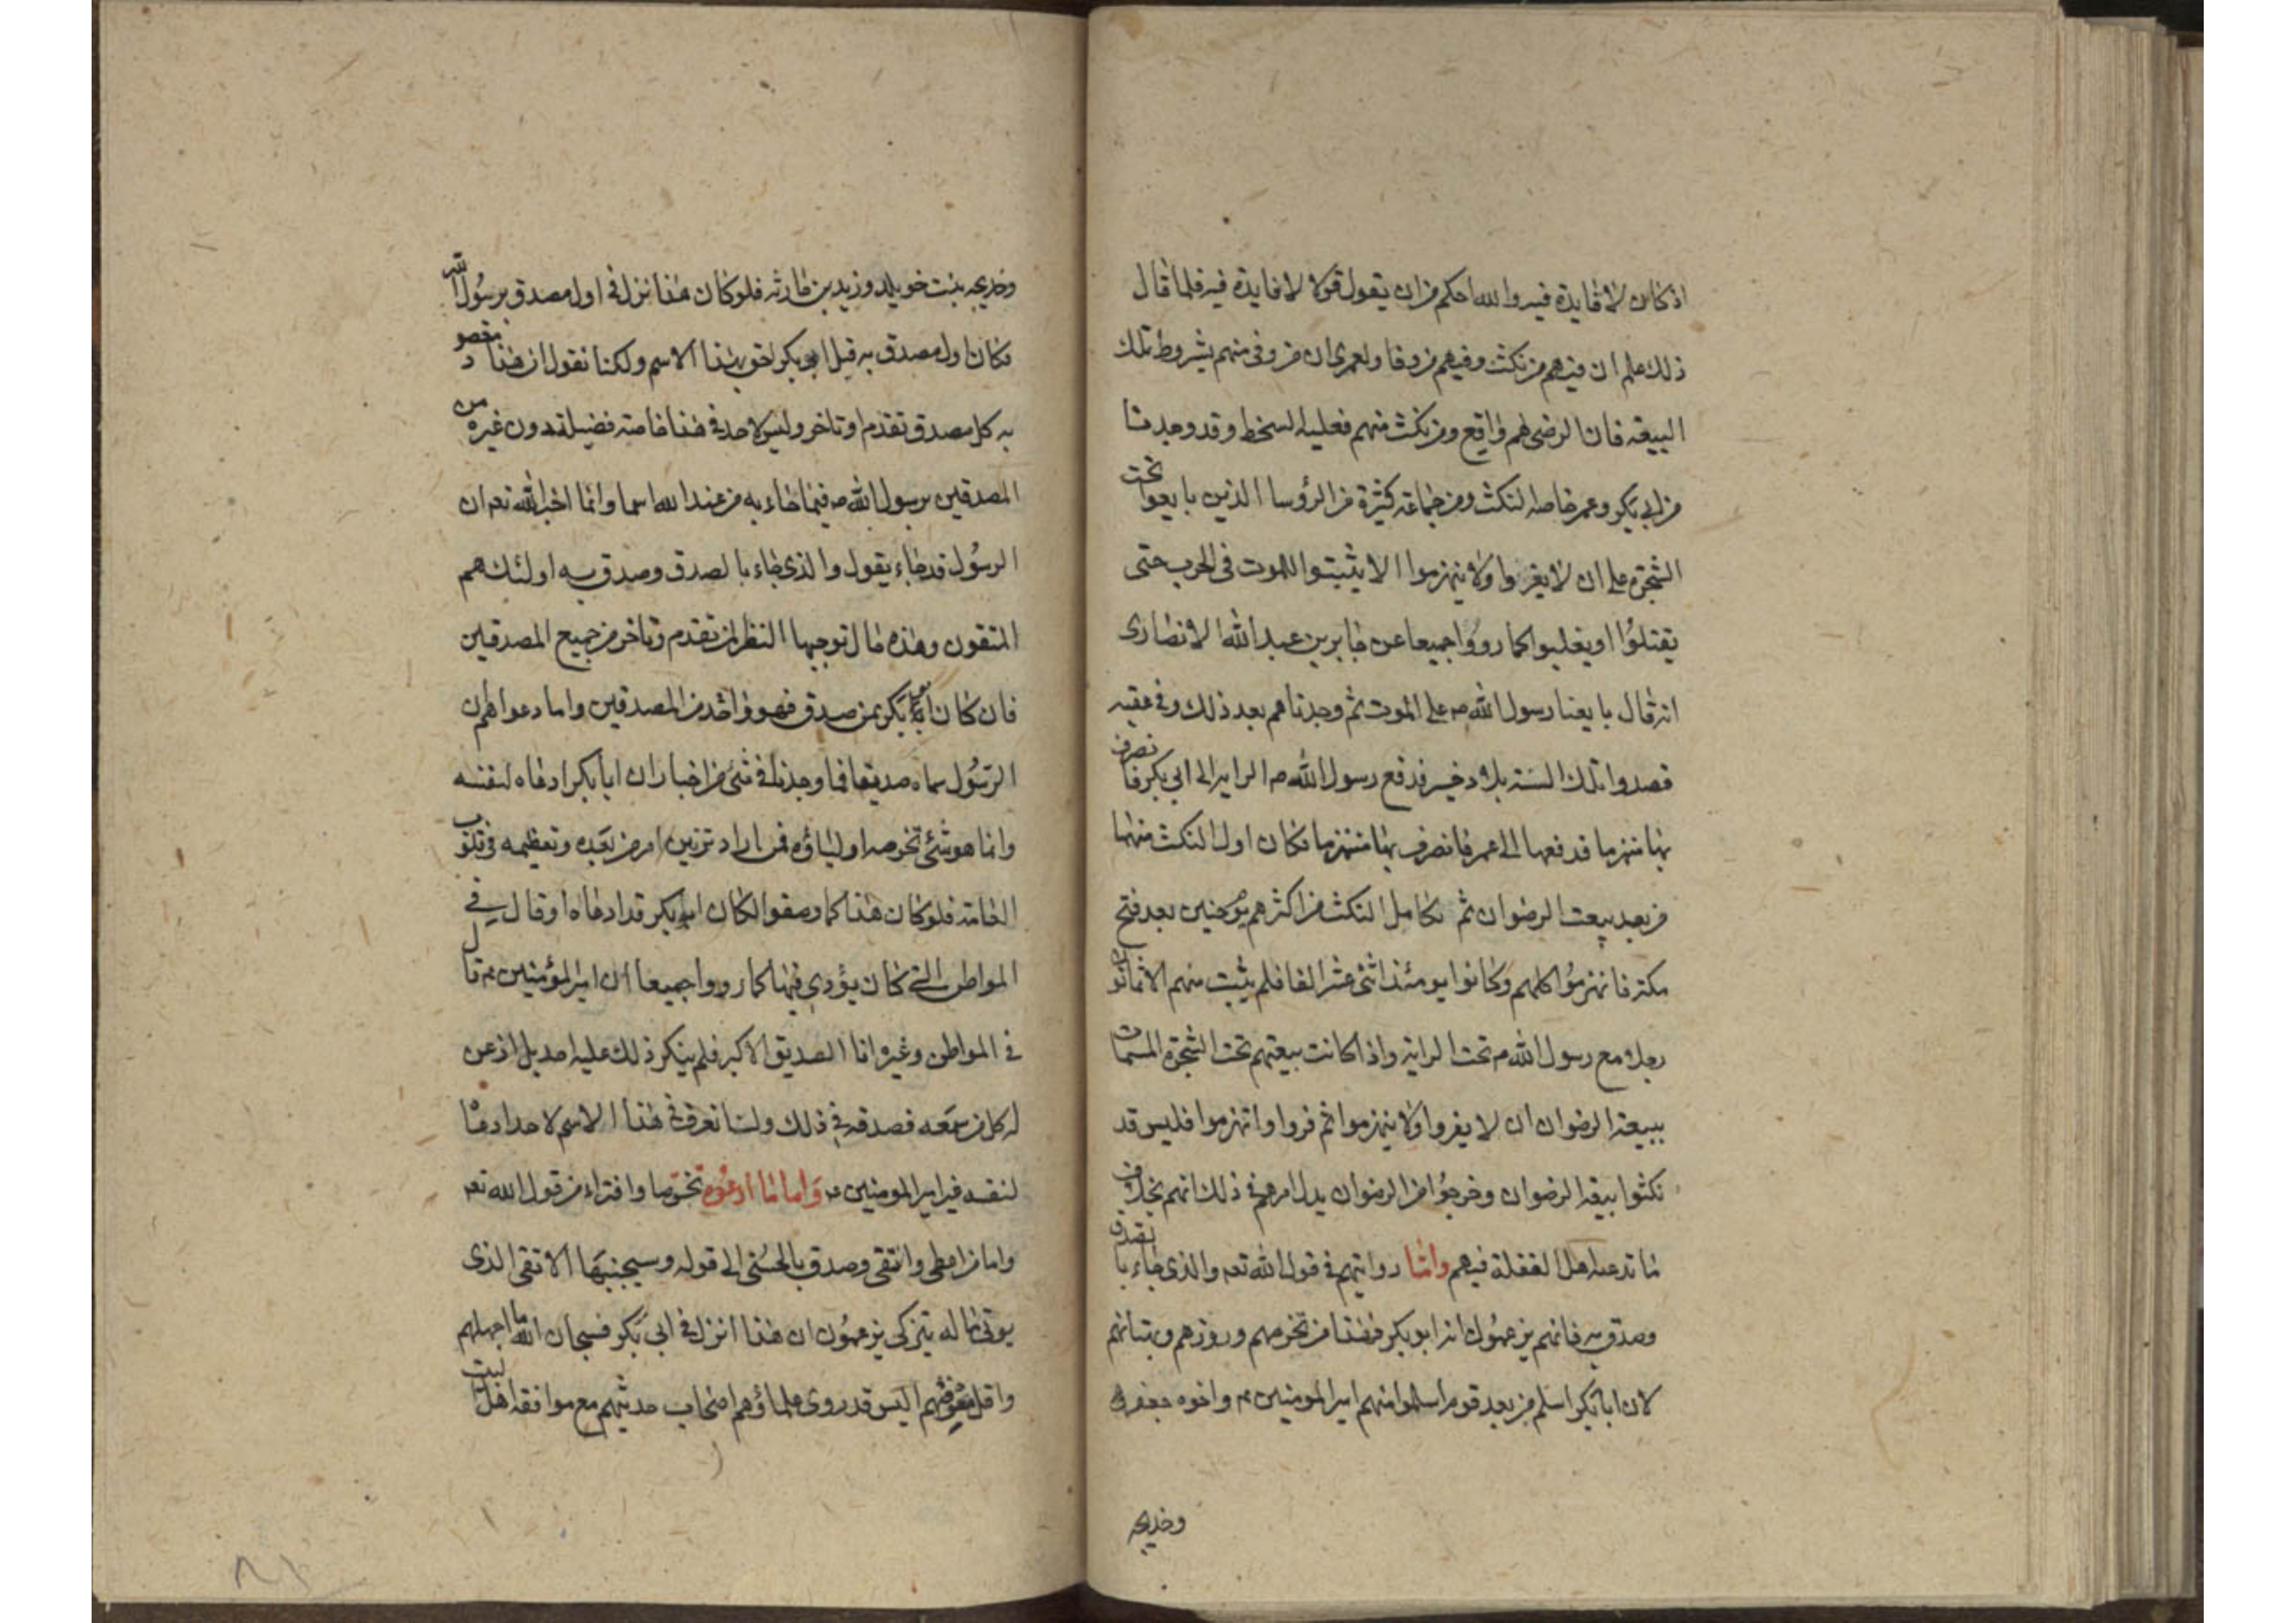 اذ كان لا فايدة فيه والله احكم من ان يقول قولا لا فايدة فيه فلما قال
ذلك علم ان فيهم من نكث وفيهم من وفا ولعمرى ان من وفى منهم بشروط تلك
البيعة فان الرضى لهم واقع ومن نكث منهم فعليه السخط وقد وجدنا
من ابى بكر وعمر خاصه النكث ومن جماعة كثيرة من الرؤسا الذين بايعوا تحت
الشجرة على ان لا يفروا ولا ينهزموا الا يثبتوا للموت فى الحرب حتى
يقتلوا او يغلبوا كما رووا جميعا عن جابر بن عبد الله الانصارى
انه قال بايعنا رسول الله ص على الموت ثم وجدناهم بعد ذلك وفى عقبه
قصدوا تلك السنة بلاد خيبر فدفع رسول الله ص الراية الى ابى بكر فانصرف
بها منهزما فدفعها الى عمر فانصرف بها منهزما فكان اول النكث منهما
من بعد بيعت الرضوان ثم تكامل النكث من اكثرهم يوم حنين بعد فتح
مكة فانهزموا كلهم وكانوا يومئذ اثنى عشر الفا فلم يثبت منهم الا ثمانون
رجلا مع رسول الله ص تحت الراية واذا كانت بيعتهم تحت الشجرة المسمات
ببيعة الرضوان ان لا يفروا ولا ينهزموا ثم فروا وانهزموا فليس قد
نكثوا بيعة الرضوان وخرجوا من الرضوان بدل امرهم فى ذلك انهم بخلاف
ما تدعيه اهل الغفلة فيهم واما روايتهم فى قول الله تعه والذى جاء بالصدق
وصدق به فانهم يزعمون انه ابو بكر فهذا من تخرصهم وزورهم وبهتانهم
لان ابا بكر اسلم من بعد قوم اسلموا منهم امير المومنين ع واخوه جعفر
وخديجه
وخديجه بنت خويلد وزيد بن حارثه فلو كان هذا نزل فى اول مصدق برسول الله
فكان اول مصدق به قبل ابو بكر احق بهذا الاسم ولكنا نقول ان هذا مقصود
به كل مصدق تقدم او تاخر وليس لاحد فى هذا خاصة فضيلة دون غيره من
المصدقين برسول الله ص فيما جاء به من عند الله اسما وانما اخبر الله تعه ان
الرسول قد جاء يقول والذى جاء بالصدق وصدق به اولئك هم
المتقون وهذه حال توجيها النظر لمن تقدم وتاخر من جميع المصدقين
فان كان ابو بكر ممن صدق فهو واحد من المصدقين واما دعواهم ان
الرسول سماه صديقا فما وجدنا فى شئ من اخبار ان ابا بكر ادعاه لنفسه
وانما هو شئ تخرصه اولياؤه فمن اراد تزيين امر من بعده وتعظيمه فى قلوب
العامة فلو كان هذا كما وصفوا لكان ابو بكر قد ادعاه او قال فى
المواطن التى كان يؤدى فيها كما رووا جميعا ان امير المؤمنين ع قال
فى المواطن وغيره انا الصديق الاكبر فلم ينكر ذلك عليه احد بل اذعن
له كل من سمعه فصدقه فى ذلك ولسنا نعرف فى هذا الاسم لاحد ادعاه
لنفسه غير امير المومنين ع واما ما ادعوه تخرصا وافتراء من قول الله تعه
واما من اعطى واتقى وصدق بالحسنى الى قوله وسيجنبها الاتقى الذى
يوتى ماله يتزكى يزعمون ان هذا انزل فى ابى بكر فسبحان الله ما اجهلهم
واقل معرفتهم اليس قد روى علماؤهم اصحاب حديثهم مع موافقة اهل البيت